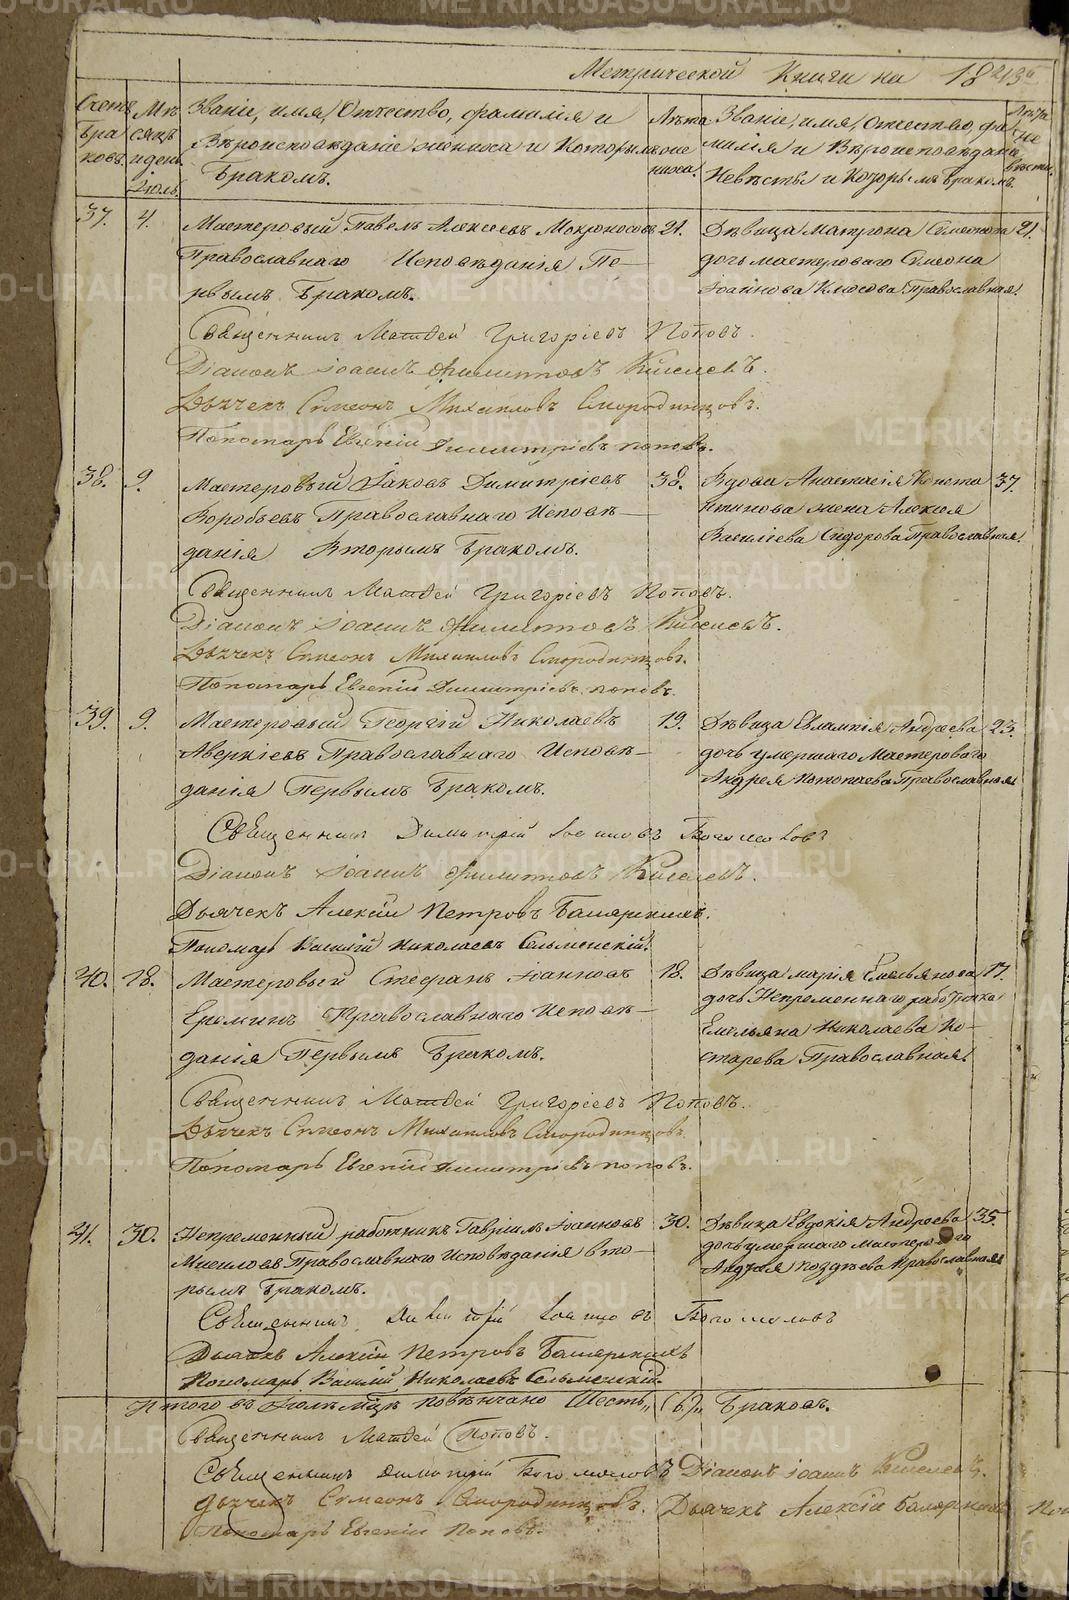 Метрической Книги на 18
Счетъ браковъ.
Мѣсяцъ и день
Іюль
Званіе, имя, Отчество, фамилія и Вѣроисповѣданіе жениха и Которымъ Бракомъ.
Лѣта жениха.
Званіе, имя, Отчество, фамилія и Вѣроисповѣданіе Невѣсты и Которымъ бракомъ.
Лѣта невѣсты.
37. 4. Мастеровый Павелъ Алексеевъ Мокроносовъ 21. Дѣвица Матрона Симеонова 21.
Православнаго Исповѣданія Пе- дочь мастероваго Симеона
рвымъ Бракомъ. Іоаннова Православная.
Священникъ Матѳей Григоріевъ Поповъ.
Діаконъ Іоаннъ Филиповъ Киселевъ.
Дьячекъ Симеонъ Михаиловъ Смородинцовъ.
Пономарь Евгеній Димитріевъ Поповъ.
38. 9. Мастеровый Іаковъ Димитріевъ 38. Вдова Анастасія Конста 37.
Воробьевъ Православнаго Исповѣ- нтинова жена Алексея
данія Вторымъ Бракомъ. Василіева Сидорова Православная.
Священникъ Матѳей Григоріевъ Поповъ.
Діаконъ Іоаннъ Филиповъ Киселевъ.
Дьячекъ Симеонъ Михаиловъ Смородинцовъ.
Пономарь Евгеній Димитріевъ Поповъ.
39. 9. Мастеровый Георгій Николаевъ 19. Дѣвица Евлампія Андреева 23.
Аверкіевъ Православнаго Исповѣ- дочь умершаго Мастероваго
данія Первымъ Бракомъ. Андрея Православная
Священникъ Димитрій Іоанновъ Богомоловъ
Діаконъ Іоаннъ Филиповъ Киселевъ.
Дьячекъ Алексій Петровъ
Пономарь Василій Николаевъ Сельменскій.
40. 18. Мастеровый Стефанъ Іоанновъ 18. Дѣвица Марія Емельянова 17.
Ереминъ Православнаго Исповѣ- дочь Непременнаго работника
данія Первымъ Бракомъ. Емельяна Николаева Ко-
старева Православная.
Священникъ Матѳей Григоріевъ Поповъ.
Дьячекъ Симеонъ Михаиловъ Смородинцовъ.
Пономарь Евгеній Димитріевъ Поповъ.
41. 30. Непременный работникъ Гавріилъ Іоанновъ 30. Дѣвица Евдокія Андреева 35.
Православнаго Исповѣданія Вто- дочь умершаго мастероваго
рымъ Бракомъ. Андрея Поздѣева Православная
Священникъ Димитрій Іоанновъ Богомоловъ
Дьячекъ Алексій Петровъ
Пономарь Василій Николаевъ Сельменскій.
Итого въ Іюлѣ Мцѣ повѣнчано Шесть „(6.)„ Браковъ.
Священникъ Матѳей Поповъ.
Священникъ Димитрій Богомоловъ Діаконъ Іоаннъ Киселевъ.
Дьячекъ Симеонъ Смородинцовъ. Дьячекъ Алексій
Пономарь Евгеній Поповъ.
METRIKI.GASO-URAL.RU